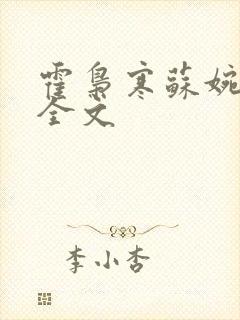 霍枭寒苏婉
全文
李小杏